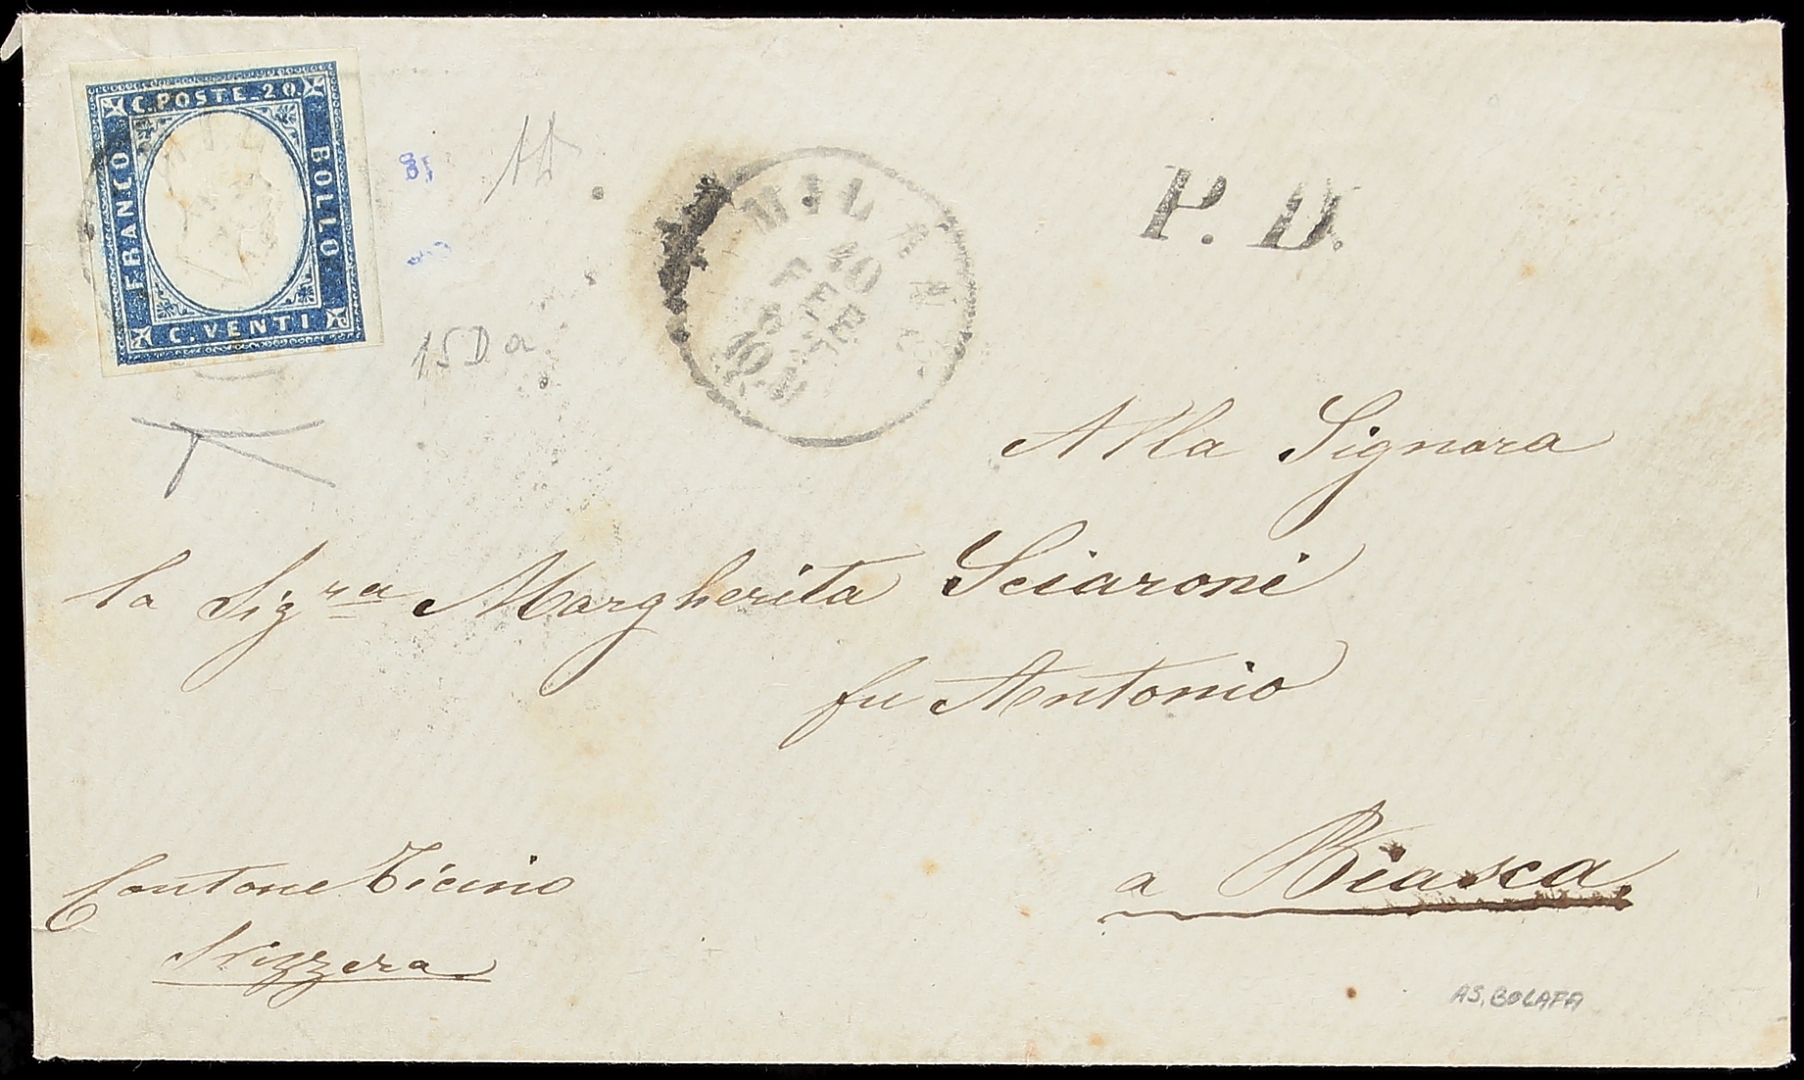 C. POSTE_20.
FRANCO
BOLLO
C. VENTI
MILANO
10
FEB
P. D.
15Da
Alla Signora
la Sigra Margherita Sciaroni
fu Antonio
a Biasca.
Cantone Ticino
Svizzera
AS. BOLAFA